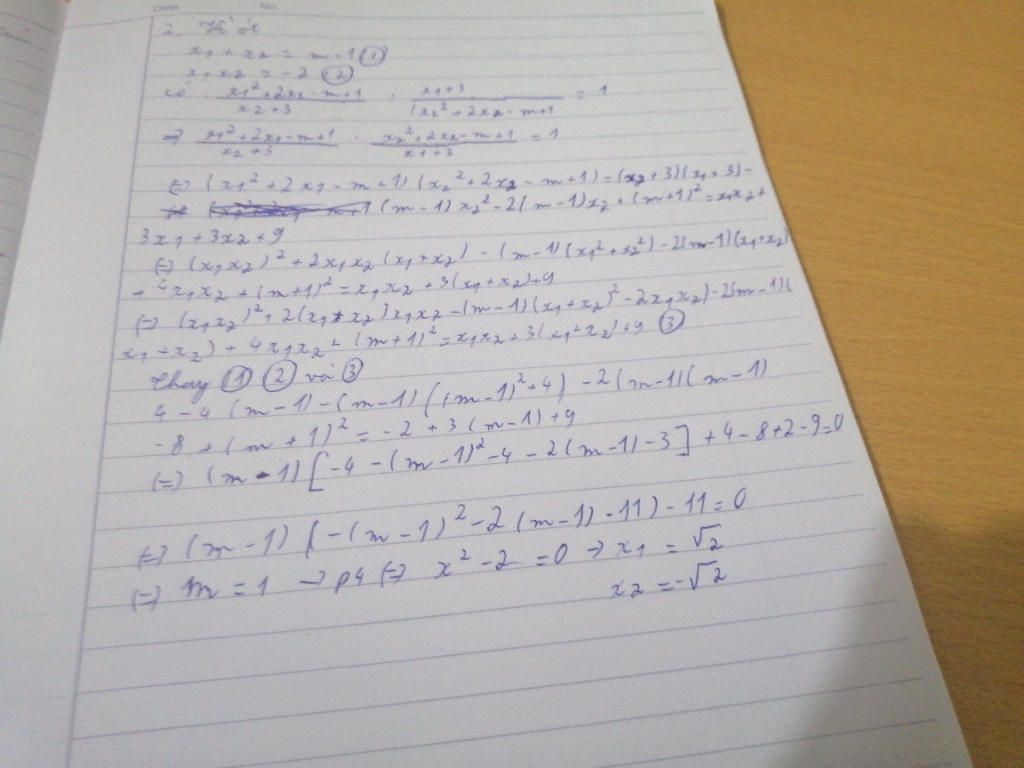 Date No.
2, Vi ét
x₁ + x₂ = m-1 ①
x₁x₂ = -2 ②
có (x₁² + 2x₁ - m+1)/(x₂+3) : (x₁+3)/(x₂² + 2x₂ - m+1 = 1
=> (x₁² + 2x₁ - m+1)/(x₂+3) . (x₂² + 2x₂ - m+1)/(x₁+3) = 1
(=) (x₁² + 2x₁ - m+1) (x₂² + 2x₂ - m+1) = (x₂+3)(x₁+3) -
(m-1) x₂² - 2(m-1)x₂ + (m+1)² = x₁x₂ +
3x₁ + 3x₂ + 9
(=) (x₁x₂)² + 2x₁x₂ (x₁+x₂) - (m-1)(x₁² + x₂²) - 2(m-1)(x₁+x₂)
+ 4x₁x₂ + (m+1)² = x₁x₂ + 3(x₁+x₂)+9
(=) (x₁x₂)² + 2(x₁+x₂)x₁x₂ - (m-1)(x₁+x₂)² - 2x₁x₂) - 2(m-1)(
x₁+x₂) + 4x₁x₂ + (m+1)² = x₁x₂ + 3(x₁+x₂)+9 ③
Thay ① ② và ③
4 - 4 (m-1) - (m-1) ((m-1)² + 4) - 2(m-1)(m-1)
-8 + (m+1)² = -2 + 3(m-1)+9
(=) (m-1) [-4 - (m-1)² - 4 - 2(m-1) - 3] + 4 - 8 + 2 - 9 = 0
(=) (m-1) (-(m-1)² - 2(m-1) - 11) - 11 = 0
(=) m = 1 → pt (=) x² - 2 = 0 → x₁ = √2
x₂ = -√2